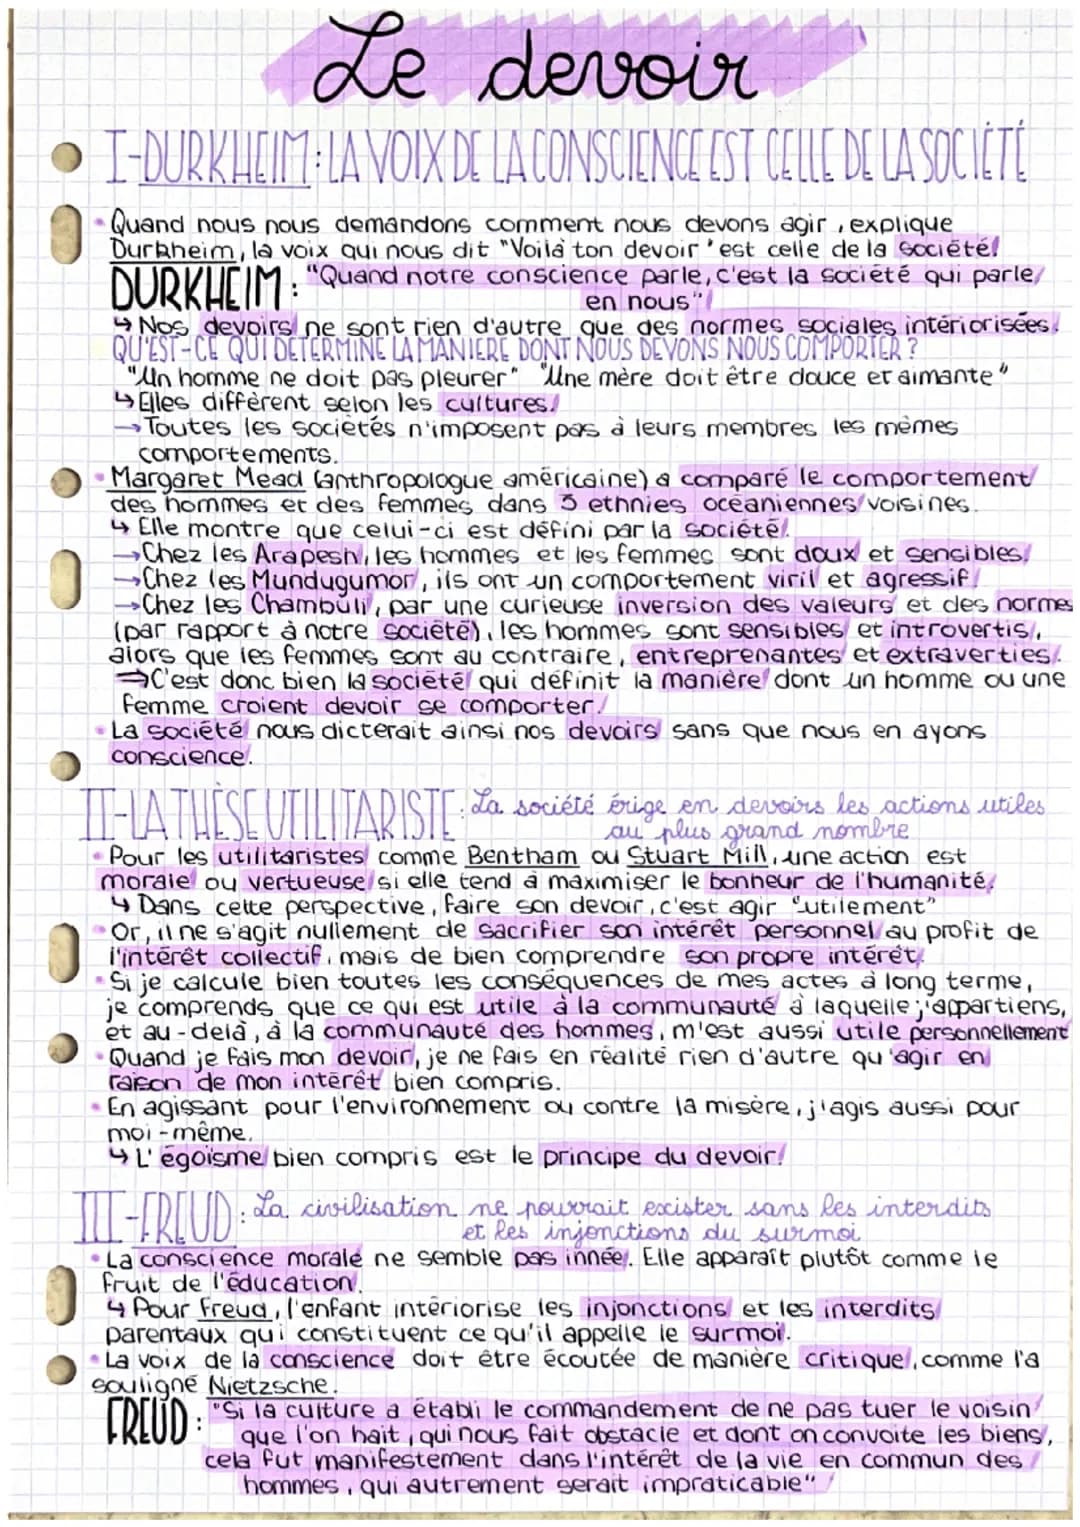 Le devoir
I-DURKHEIM: LA VOIX DE LA CONSCIENCE EST CELLE DE LA SOCIÉTÉ
• Quand nous nous demandons comment nous devons agir, explique
Durkheim, la voix qui nous dit "Voilà ton devoir" est celle de la société.
DURKHEIM: "Quand notre conscience parle, c'est la société qui parle
en nous"
↳ Nos devoirs ne sont rien d'autre que des normes sociales intériorisées.
QU'EST-CE QUI DÉTERMINE LA MANIÈRE DONT NOUS DEVONS NOUS COMPORTER ?
"Un homme ne doit pas pleurer" "Une mère doit être douce et aimante"
↳ Elles diffèrent selon les cultures.
→ Toutes les sociétés n'imposent pas à leurs membres les mêmes
comportements.
• Margaret Mead (anthropologue américaine) a comparé le comportement
des hommes et des femmes dans 3 ethnies océaniennes voisines.
↳ Elle montre que celui-ci est défini par la société.
→ Chez les Arapesh, les hommes et les femmes sont doux et sensibles.
→ Chez les Mundugumor, ils ont un comportement viril et agressif.
→ Chez les Chambuli, par une curieuse inversion des valeurs et des normes
(par rapport à notre société), les hommes sont sensibles et introvertis,
alors que les femmes sont au contraire, entreprenantes et extraverties.
⇒ C'est donc bien la société qui définit la manière dont un homme ou une
femme croient devoir se comporter.
• La société nous dicterait ainsi nos devoirs sans que nous en ayons
conscience.
II-LA THÈSE UTILITARISTE: La société érige en devoirs les actions utiles
au plus grand nombre
• Pour les utilitaristes comme Bentham ou Stuart Mill, une action est
morale ou vertueuse si elle tend à maximiser le bonheur de l'humanité.
↳ Dans cette perspective, faire son devoir, c'est agir "utilement"
• Or, il ne s'agit nullement de sacrifier son intérêt personnel au profit de
l'intérêt collectif, mais de bien comprendre son propre intérêt.
• Si je calcule bien toutes les conséquences de mes actes à long terme,
je comprends que ce qui est utile à la communauté à laquelle j'appartiens,
et au-delà, à la communauté des hommes, m'est aussi utile personnellement
• Quand je fais mon devoir, je ne fais en réalité rien d'autre qu'agir en
raison de mon intérêt bien compris.
• En agissant pour l'environnement ou contre la misère, j'agis aussi pour
moi-même.
↳ L'égoïsme bien compris est le principe du devoir.
III-FREUD: La civilisation ne pourrait exister sans les interdits
et les injonctions du surmoi
• La conscience morale ne semble pas innée. Elle apparaît plutôt comme le
fruit de l'éducation.
↳ Pour Freud, l'enfant intériorise les injonctions et les interdits
parentaux qui constituent ce qu'il appelle le surmoi.
• La voix de la conscience doit être écoutée de manière critique, comme l'a
souligné Nietzsche.
FREUD: "Si la culture a établi le commandement de ne pas tuer le voisin
que l'on hait, qui nous fait obstacle et dont on convoite les biens,
cela fut manifestement dans l'intérêt de la vie en commun des
hommes, qui autrement serait impraticable"